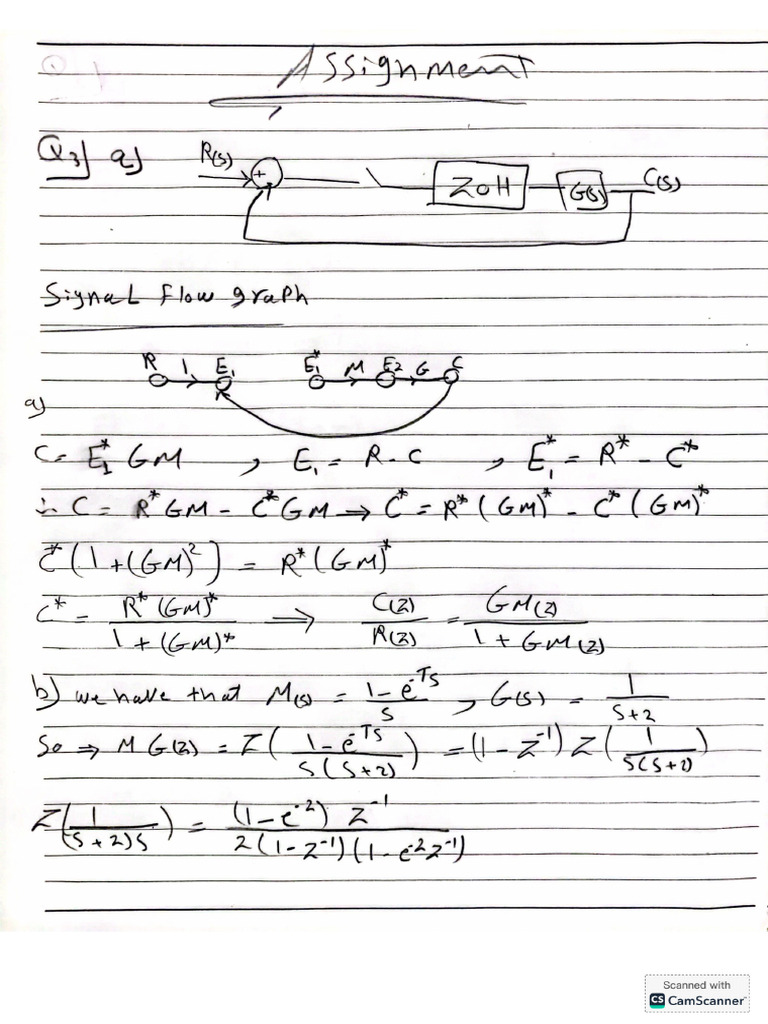 Assignment
Q3) a) R(s) + ZOH G(s) C(s)
Signal Flow graph
R 1 E₁ E₁* M E₂ G C
a)
C = E₁* GM , E₁ = R - C , E₁* = R* - C*
∴ C = R* GM - C* GM → C* = R* (GM)* - C* (GM)*
C* (1 + (GM)²) = R* (GM)*
C* = R* (GM)* / 1 + (GM)* ⇒ C(z) / R(z) = GM(z) / 1 + GM(z)
b) we have that M(s) = 1 - e^-Ts / s , G(s) = 1 / s+2
So ⇒ MG(z) = Z( 1 - e^-Ts / s(s+2) ) = (1 - z^-1) Z( 1 / s(s+2) )
Z( 1 / (s+2)s ) = (1 - e^-2) z^-1 / 2(1 - z^-1)(1 - e^-2 z^-1)
Scanned with
CS CamScanner